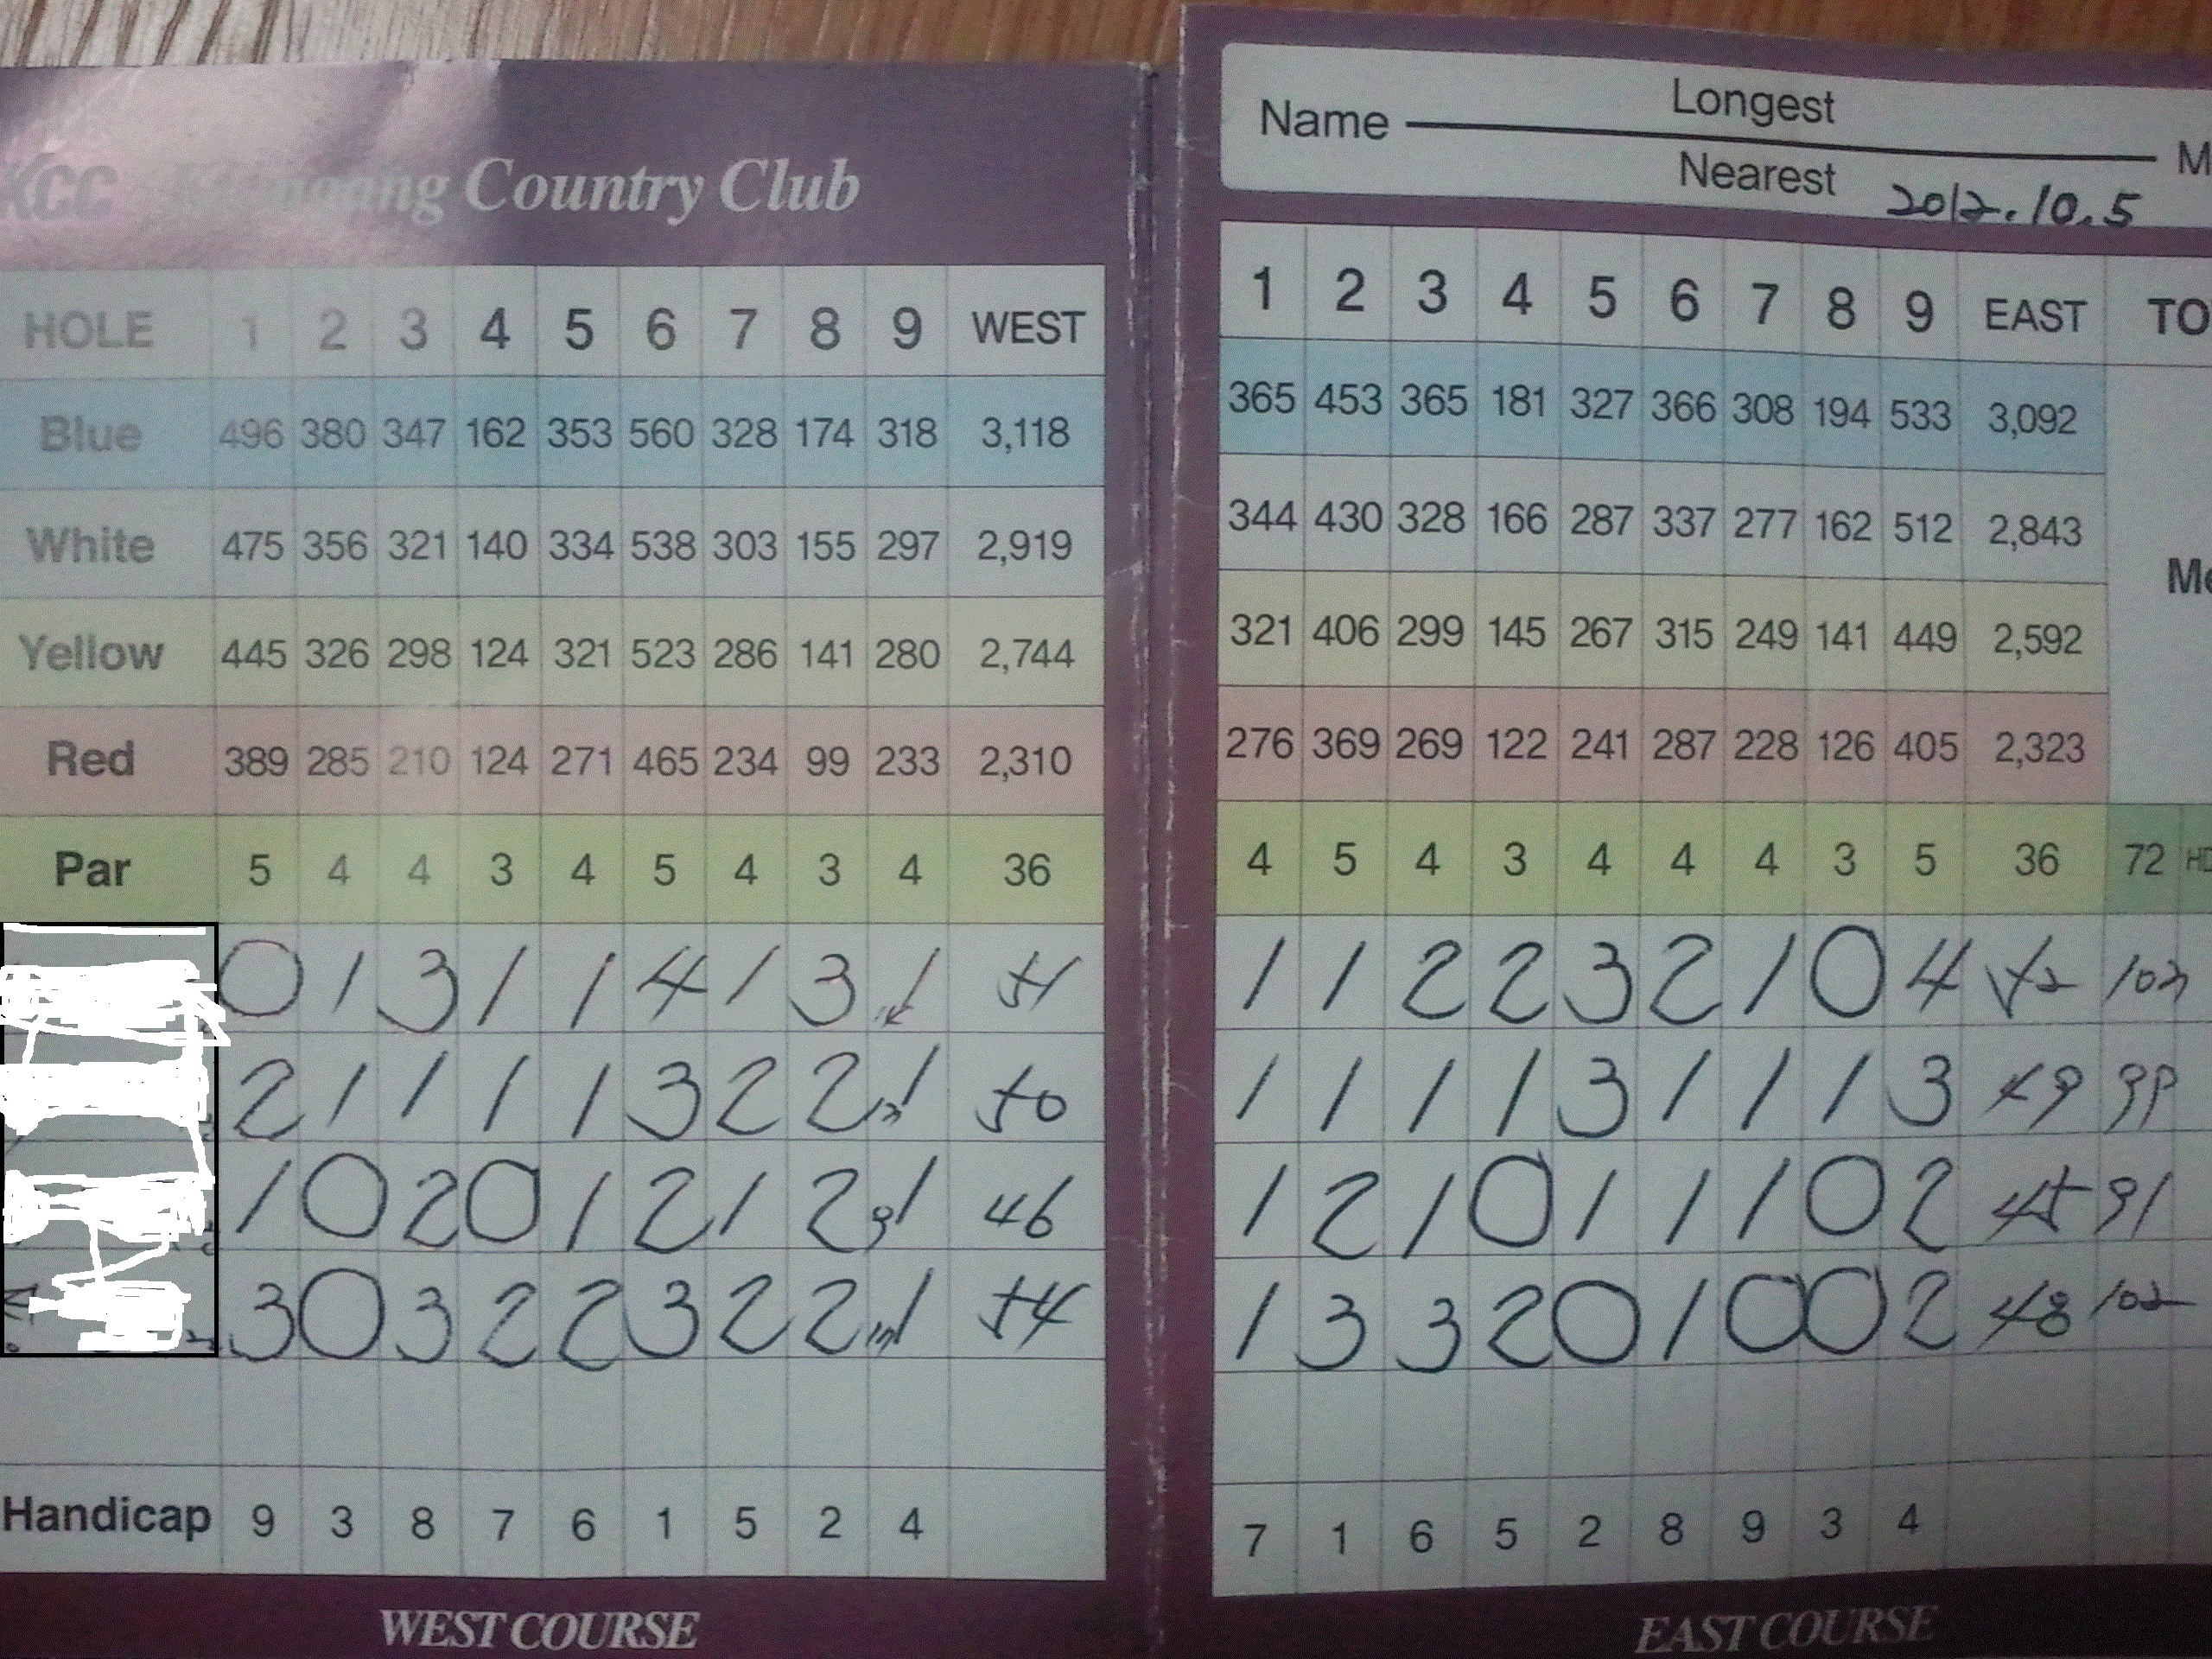 Country Club
HOLE 1 2 3 4 5 6 7 8 9 WEST
Blue 496 380 347 162 353 560 328 174 318 3,118
White 475 356 321 140 334 538 303 155 297 2,919
Yellow 445 326 298 124 321 523 286 141 280 2,744
Red 389 285 210 124 271 465 234 99 233 2,310
Par 5 4 4 3 4 5 4 3 4 36
0 1 3 1 1 4 1 3 1 51
2 1 1 1 1 3 2 2 1 50
1 0 2 0 1 2 1 2 1 46
3 0 3 2 2 3 2 2 1 54
Handicap 9 3 8 7 6 1 5 2 4
WEST COURSE
Longest
Name
Nearest
2012.10.5
1 2 3 4 5 6 7 8 9 EAST TO
365 453 365 181 327 366 308 194 533 3,092
344 430 328 166 287 337 277 162 512 2,843
321 406 299 145 267 315 249 141 449 2,592
276 369 269 122 241 287 228 126 405 2,323
4 5 4 3 4 4 4 3 5 36 72
1 1 2 2 3 2 1 0 4 52 103
1 1 1 1 3 1 1 1 3 49 99
1 2 1 0 1 1 1 0 2 45 91
1 3 3 2 0 1 0 0 2 48 102
7 1 6 5 2 8 9 3 4
EAST COURSE